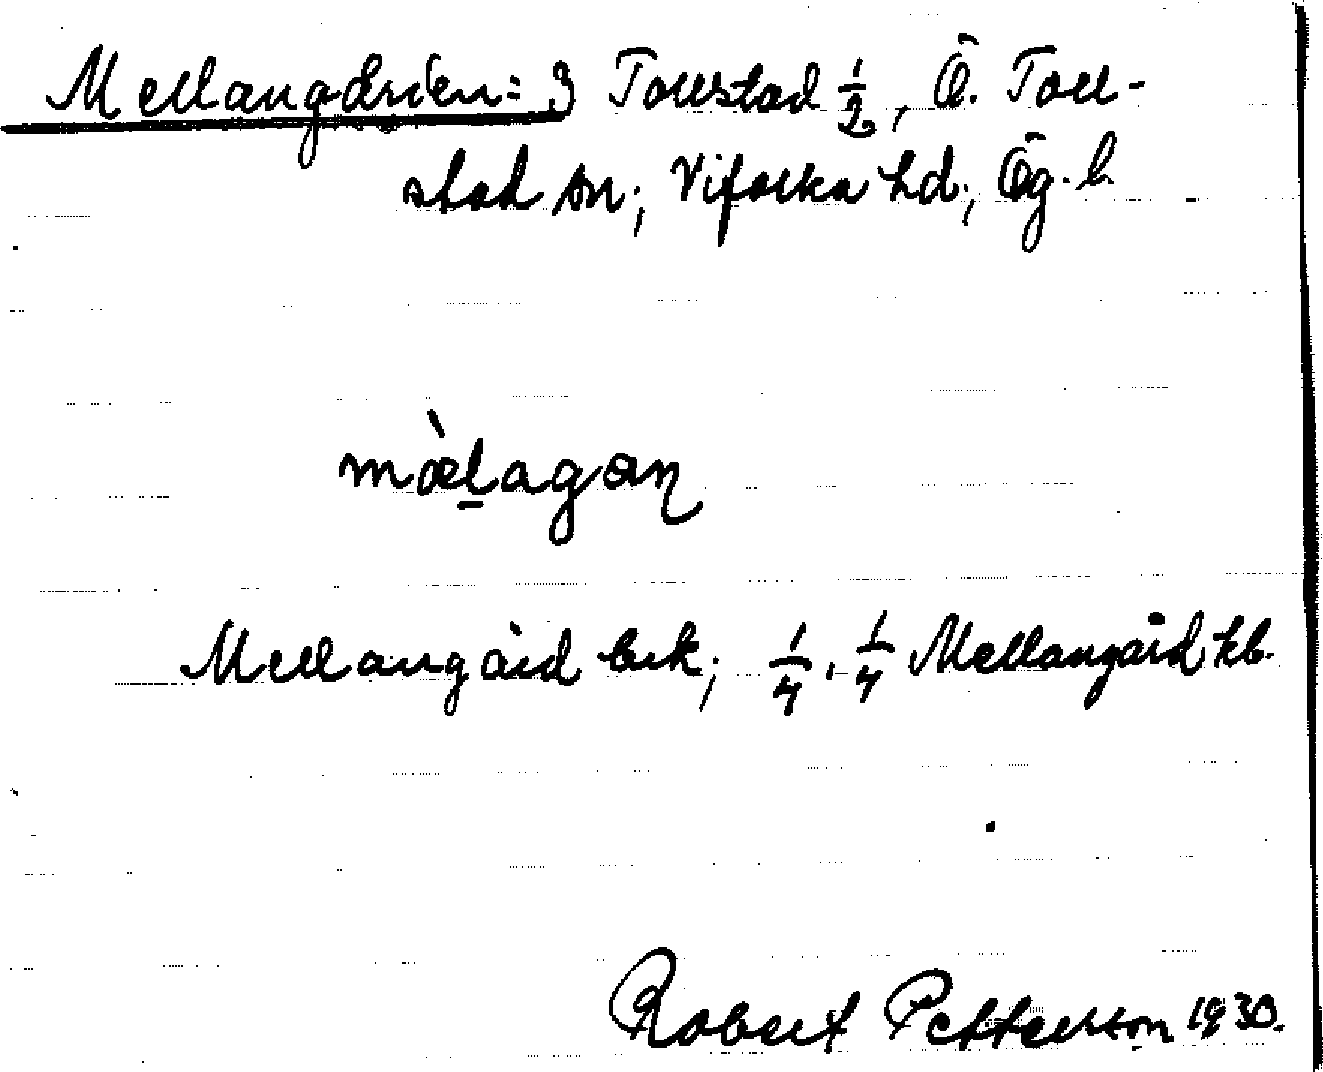 Mellangården = 3 Tollstad ½, Ö. Toll-
stad sn; Vifolka hd; Ög. l.
mæ̀lagan
Mellangård bek; ¼, ¼ Mellangård kb.
Robert Petterson 1930.